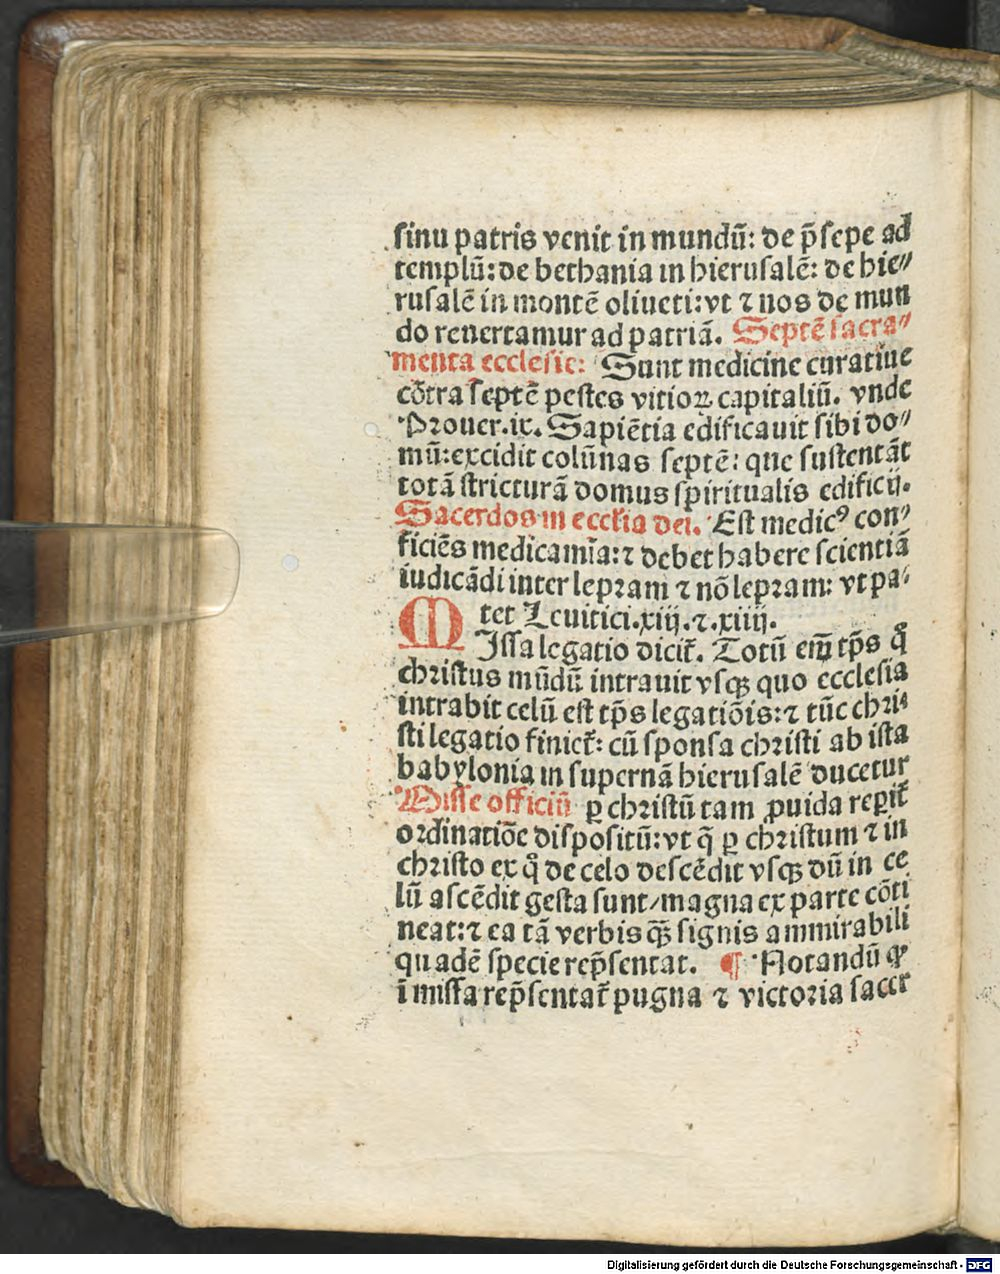 sinu patris venit in mundū: de p̄sepe ad
templū: de bethania in hierusalē: de hie⸗
rusalē in montē oliueti: vt ⁊ nos de mun
do reuertamur ad patriā. Septē sacra⸗
menta ecclesie: Sunt medicine curatiue
cōtra septē pestes vitioꝝ capitaliū. vnde
Prouer. ix. Sapiētia edificauit sibi do⸗
mū: excidit colūnas septē: que sustentāt
totā stricturā domus spiritualis edificij.
Sacerdos in eccĺia dei. Est medicꝰ con⸗
ficiēs medicamīa: ⁊ debet habere scientiā
iudicādi inter lepram ⁊ nō lepram: vt pa⸗
tet Leuitici. xiij. ⁊. xiiij.
MIssa legatio dicit̄. Totū em̄ tp̄s qͦ
christus mūdū intrauit vsqꝫ quo ecclesia
intrabit celū est tp̄s legatiōis: ⁊ tūc chri⸗
sti legatio finiet̄: cū sponsa christi ab ista
babylonia in supernā hierusalē ducetur
Misse officiū ꝑ christū tam ꝓuida reperit̄
ordinatiōe dispositū: vt q̄ ꝑ christum ⁊ in
christo ex qͦ de celo descēdit vsqꝫ dū in ce
lū ascēdit gesta sunt/ magna ex parte cōti
neat: ⁊ ea tā verbis qꝫ̄ signis ammirabili
quadē specie rep̄sentat. ¶ Notandū ꝙ
ī missa rep̄sentat̄ pugna ⁊ victoria sacer
Digitalisierung gefördert durch die Deutsche Forschungsgemeinschaft - DFG